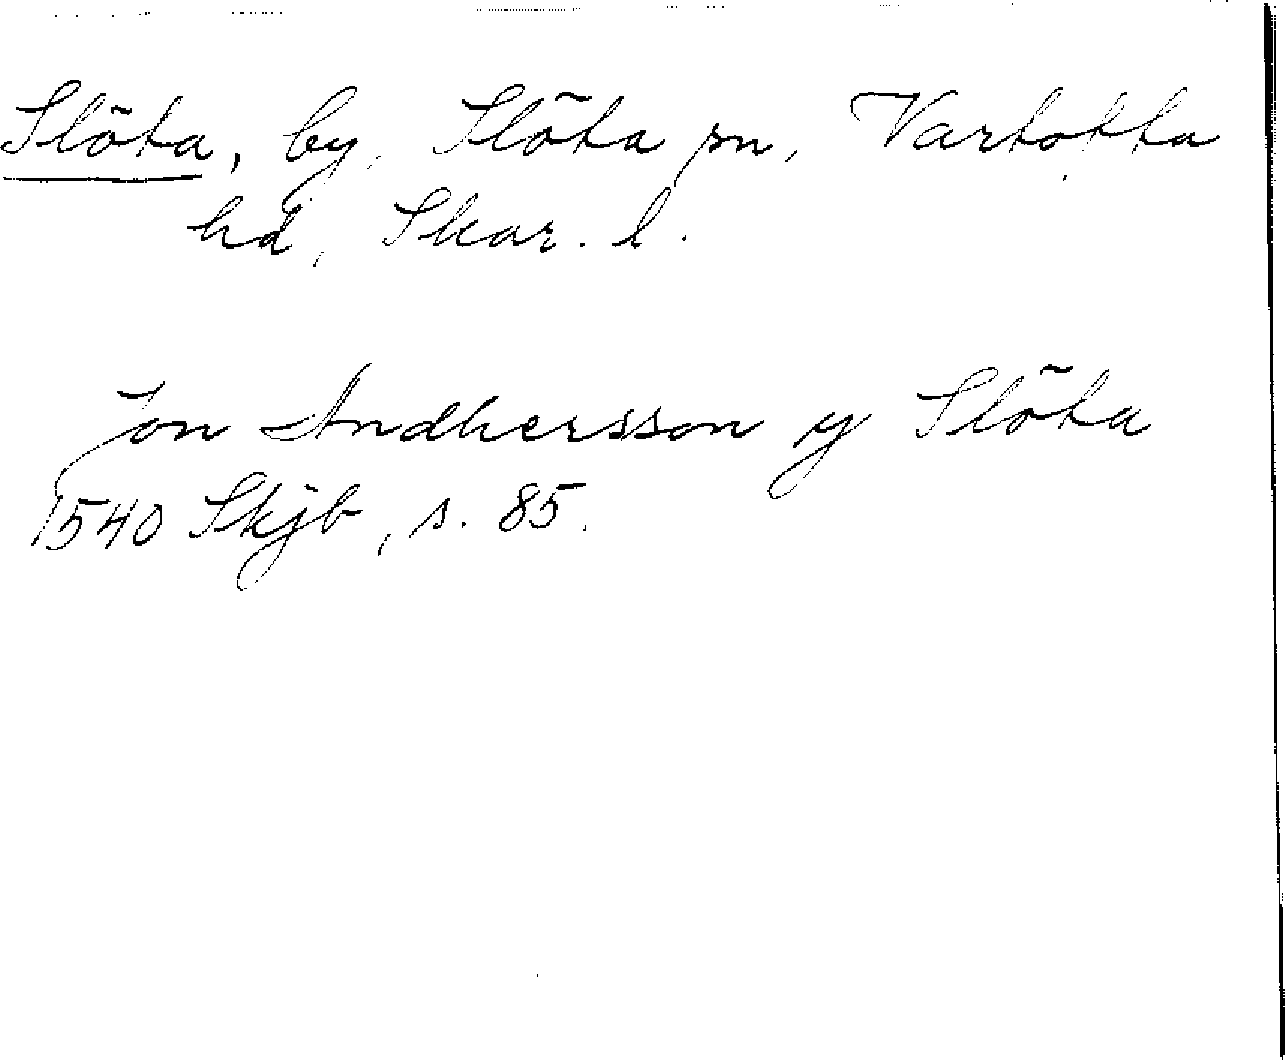 Slöta, by, Slöta sn, Vartofta
hd, Skar. l.
Jon Andhersson y Slöta
1540 Skjb, s. 85.